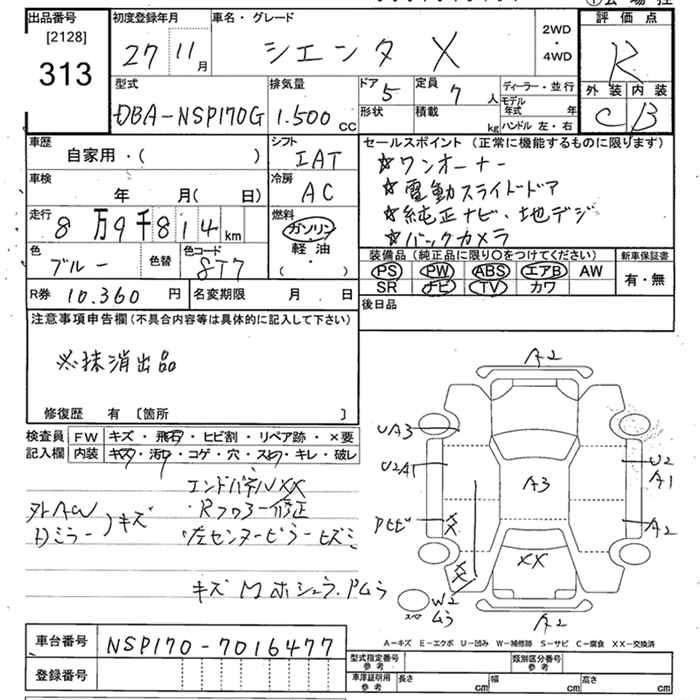 出品番号 [2128] 313
初度登録年月 27 11月
車名・グレード シエンタ X
2WD・4WD
評価点 R
型式 DBA-NSP170G
排気量 1.500 cc
ドア 5 形状
定員 7 人 積載 kg
ディーラー・並行
モデル年式 年
ハンドル 左・右
外装 C 内装 B
車歴 自家用・( )
シフト IAT
セールスポイント (正常に機能するものに限ります)
☆ワンオーナー
☆電動スライドドア
☆純正ナビ・地デジ
☆バックカメラ
車検 年 月( 日)
冷房 AC
走行 8万9千814km
燃料 ガソリン・軽油・( )
色 ブルー 色替 色コード 8T7
装備品 (純正品に限り○をつけてください)
PS PW ABS エアB AW
SR ナビ TV カワ
新車保証書 有・無
R券 10.360 円
名変期限 月 日
後日品
注意事項申告欄 (不具合内容等は具体的に記入して下さい)
※抹消出品
修復歴 有 〔箇所 〕
検査員記入欄
FW キズ・飛石・ヒビ割・リペア跡・×要
内装 キズ・汚れ・コゲ・穴・スレ・キレ・破レ
エンドパネルXX
Rフロアー修正
左センターピラーヒズミ
外AW
Dミラー
)キズ
A2
UA3
U2A1
A3
U2
A1
A2
XX
W2
ムラ
A2
A-キズ E-エクボ U-凹み W-補修跡 S-サビ C-腐食 XX-交換済
車台番号 NSP170-7016477
登録番号
型式指定番号 参考
類別区分番号 参考
車庫証明用 参考 長さ cm 幅 cm 高さ cm